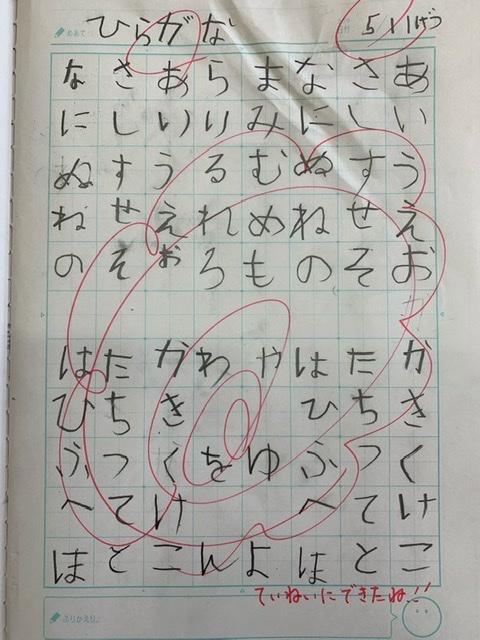 めあて
ひらがな
5/11げつ
あいうえお　かきくけこ
さしすせそ　たちつてと
なにぬねの　はひふへほ
まみむめも　や　ゆ　よ
らりるれろ　わ　を　ん
あいうえお　かきくけこ
さしすせそ　たちつてと
なにぬねの　はひふへほ
ていねいにできたね!!
ふりかえり